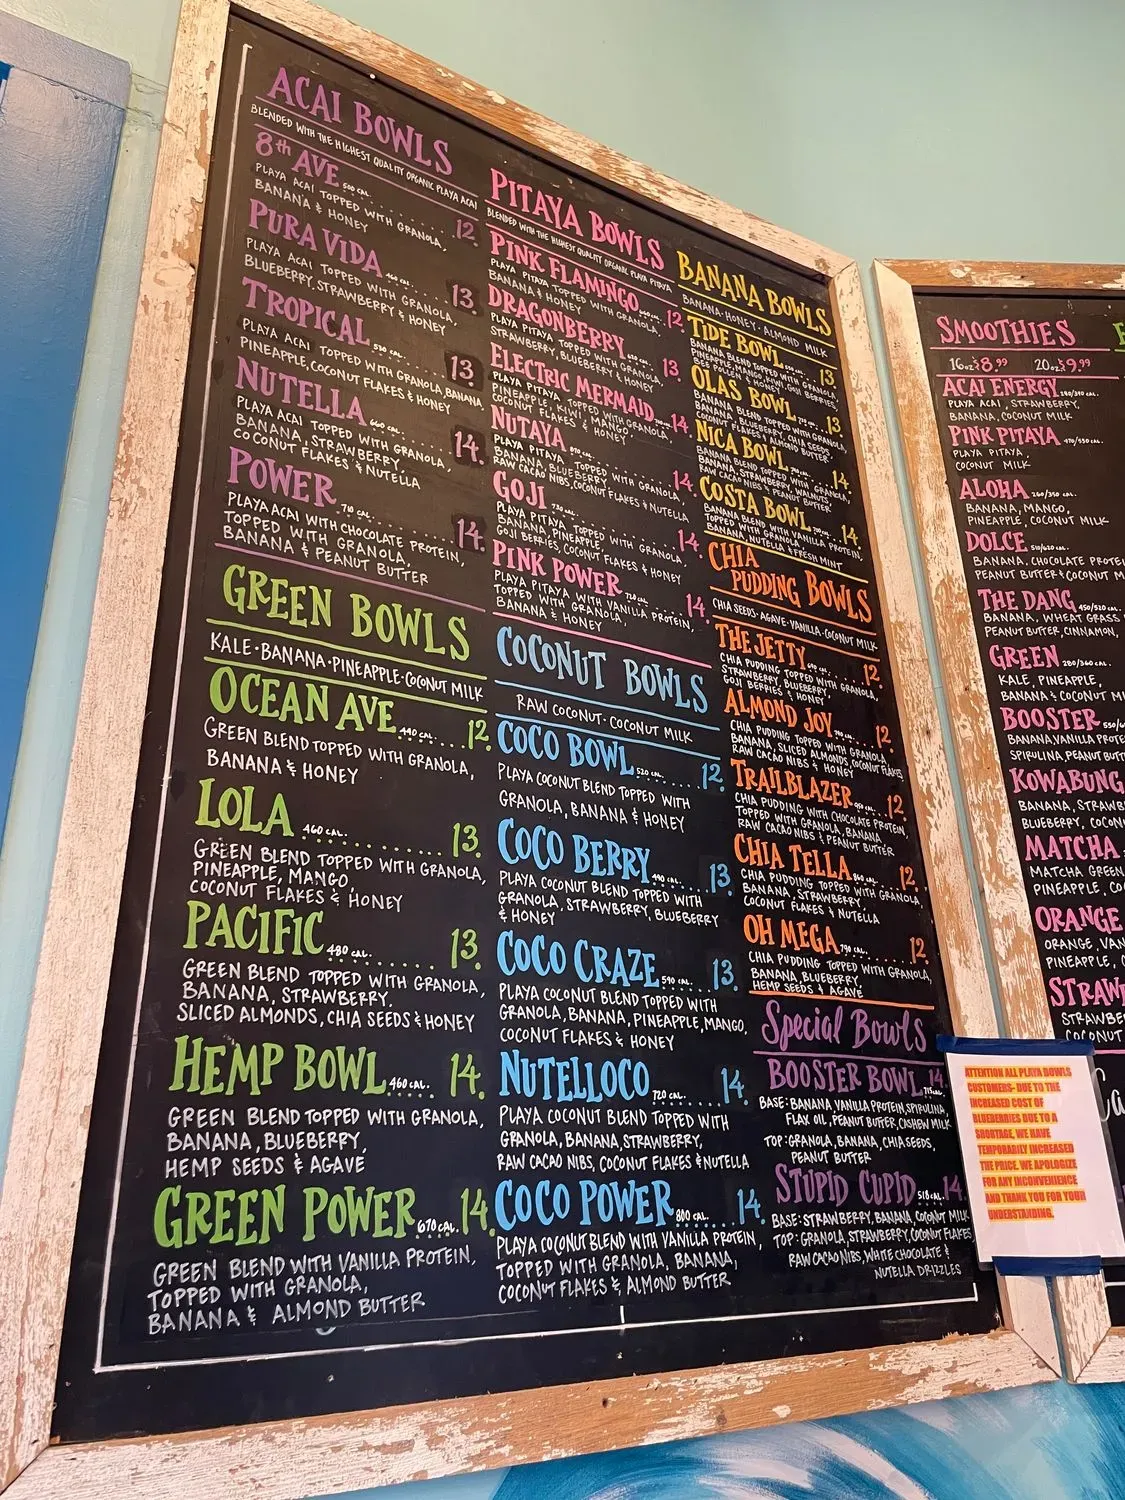 ACAI BOWLS
BLENDED WITH THE HIGHEST QUALITY ORGANIC PLAYA ACAI
8th AVE 500 CAL. 12.
PLAYA ACAI TOPPED WITH GRANOLA,
BANANA & HONEY
PURA VIDA 460 CAL. 13.
PLAYA ACAI TOPPED WITH GRANOLA,
BLUEBERRY, STRAWBERRY & HONEY
TROPICAL 530 CAL. 13.
PLAYA ACAI TOPPED WITH GRANOLA, BANANA,
PINEAPPLE, COCONUT FLAKES & HONEY
NUTELLA 660 CAL. 14.
PLAYA ACAI TOPPED WITH GRANOLA,
BANANA, STRAWBERRY,
COCONUT FLAKES & NUTELLA
POWER 710 CAL. 14.
PLAYA ACAI WITH CHOCOLATE PROTEIN,
TOPPED WITH GRANOLA,
BANANA & PEANUT BUTTER
GREEN BOWLS
KALE · BANANA · PINEAPPLE · COCONUT MILK
OCEAN AVE 440 CAL. 12.
GREEN BLEND TOPPED WITH GRANOLA,
BANANA & HONEY
LOLA 460 CAL. 13.
GREEN BLEND TOPPED WITH GRANOLA,
PINEAPPLE, MANGO,
COCONUT FLAKES & HONEY
PACIFIC 480 CAL. 13.
GREEN BLEND TOPPED WITH GRANOLA,
BANANA, STRAWBERRY,
SLICED ALMONDS, CHIA SEEDS & HONEY
HEMP BOWL 460 CAL. 14.
GREEN BLEND TOPPED WITH GRANOLA,
BANANA, BLUEBERRY,
HEMP SEEDS & AGAVE
GREEN POWER 670 CAL. 14.
GREEN BLEND WITH VANILLA PROTEIN,
TOPPED WITH GRANOLA,
BANANA & ALMOND BUTTER
PITAYA BOWLS
BLENDED WITH THE HIGHEST QUALITY ORGANIC PLAYA PITAYA
PINK FLAMINGO 12
PLAYA PITAYA TOPPED WITH GRANOLA,
BANANA & HONEY
DRAGONBERRY 13.
PLAYA PITAYA TOPPED WITH GRANOLA,
STRAWBERRY, BLUEBERRY & HONEY
ELECTRIC MERMAID 14.
PLAYA PITAYA TOPPED WITH GRANOLA,
PINEAPPLE, KIWI, MANGO,
COCONUT FLAKES & HONEY
NUTAYA 14.
PLAYA PITAYA TOPPED WITH GRANOLA,
BANANA, BLUEBERRY,
RAW CACAO NIBS, COCONUT FLAKES & NUTELLA
GOJI 14.
PLAYA PITAYA TOPPED WITH GRANOLA,
BANANA, PINEAPPLE
GOJI BERRIES, COCONUT FLAKES & HONEY
PINK POWER 720 CAL. 14.
PLAYA PITAYA WITH VANILLA PROTEIN,
TOPPED WITH GRANOLA,
BANANA & HONEY
COCONUT BOWLS
RAW COCONUT · COCONUT MILK
COCO BOWL 520 CAL. 12.
PLAYA COCONUT BLEND TOPPED WITH
GRANOLA, BANANA & HONEY
COCO BERRY 490 CAL. 13.
PLAYA COCONUT BLEND TOPPED WITH
GRANOLA, STRAWBERRY, BLUEBERRY
& HONEY
COCO CRAZE 590 CAL. 13.
PLAYA COCONUT BLEND TOPPED WITH
GRANOLA, BANANA, PINEAPPLE, MANGO,
COCONUT FLAKES & HONEY
NUTELLOCO 720 CAL. 14.
PLAYA COCONUT BLEND TOPPED WITH
GRANOLA, BANANA, STRAWBERRY,
RAW CACAO NIBS, COCONUT FLAKES & NUTELLA
COCO POWER 800 CAL. 14.
PLAYA COCONUT BLEND WITH VANILLA PROTEIN,
TOPPED WITH GRANOLA, BANANA,
COCONUT FLAKES & ALMOND BUTTER
BANANA BOWLS
BANANA · HONEY · ALMOND MILK
TIDE BOWL 13.
BANANA BLEND TOPPED WITH GRANOLA,
PINEAPPLE, MANGO, GOJI BERRIES,
BEE POLLEN & HONEY
OLAS BOWL 13
BANANA BLEND TOPPED WITH GRANOLA,
BANANA, BLUEBERRY, CHIA SEEDS,
COCONUT FLAKES & ALMOND BUTTER
NICA BOWL 14
BANANA BLEND TOPPED WITH GRANOLA,
BANANA, STRAWBERRY, WALNUTS,
RAW CACAO NIBS & PEANUT BUTTER
COSTA BOWL 14
BANANA BLEND WITH VANILLA PROTEIN,
TOPPED WITH GRANOLA,
BANANA, NUTELLA & FRESH MINT
CHIA
PUDDING BOWLS
CHIA SEEDS · AGAVE · VANILLA · COCONUT MILK
THE JETTY 12.
CHIA PUDDING TOPPED WITH GRANOLA,
STRAWBERRY, BLUEBERRY,
GOJI BERRIES & HONEY
ALMOND JOY 12.
CHIA PUDDING TOPPED WITH GRANOLA,
BANANA, SLICED ALMONDS, COCONUT FLAKES,
RAW CACAO NIBS & HONEY
TRAILBLAZER 12.
CHIA PUDDING WITH CHOCOLATE PROTEIN,
TOPPED WITH GRANOLA, BANANA
RAW CACAO NIBS & PEANUT BUTTER
CHIA TELLA 12.
CHIA PUDDING TOPPED WITH GRANOLA,
BANANA, STRAWBERRY,
COCONUT FLAKES & NUTELLA
OH MEGA 790 CAL. 12.
CHIA PUDDING TOPPED WITH GRANOLA,
BANANA, BLUEBERRY
HEMP SEEDS & AGAVE
Special Bowls
BOOSTER BOWL 14.
BASE: BANANA, VANILLA PROTEIN, SPIRULINA,
FLAX OIL, PEANUT BUTTER, CASHEW MILK
TOP: GRANOLA, BANANA, CHIA SEEDS,
PEANUT BUTTER
STUPID CUPID 518 CAL. 14.
BASE: STRAWBERRY, BANANA, COCONUT MILK
TOP: GRANOLA, STRAWBERRY, COCONUT FLAKES,
RAW CACAO NIBS, WHITE CHOCOLATE &
NUTELLA DRIZZLES
SMOOTHIES
16oz $8.99 20oz $9.99
ACAI ENERGY 280/390 CAL.
PLAYA ACAI, STRAWBERRY,
BANANA, COCONUT MILK
PINK PITAYA 470/550 CAL.
PLAYA PITAYA,
COCONUT MILK
ALOHA 260/350 CAL.
BANANA, MANGO,
PINEAPPLE, COCONUT MILK
DOLCE 510/620 CAL.
BANANA, CHOCOLATE PROTEI
PEANUT BUTTER & COCONUT M
THE DANG 450/520 CAL.
BANANA, WHEAT GRASS
PEANUT BUTTER, CINNAMON,
GREEN 280/360 CAL.
KALE, PINEAPPLE,
BANANA & COCONUT MI
BOOSTER 550/6
BANANA, VANILLA PROTE
SPIRULINA, PEANUT BUTT
KOWABUNG
BANANA, STRAWB
BLUEBERRY, COCON
MATCHA
MATCHA GREEN
PINEAPPLE, CO
ORANGE
ORANGE, VAN
PINEAPPLE, C
STRAW
STRAWBE
COCONUT
ATTENTION ALL PLAYA BOWLS
CUSTOMERS- DUE TO THE
INCREASED COST OF
BLUEBERRIES DUE TO A
SHORTAGE, WE HAVE
TEMPORARILY INCREASED
THE PRICE. WE APOLOGIZE
FOR ANY INCONVENIENCE
AND THANK YOU FOR YOUR
UNDERSTANDING.